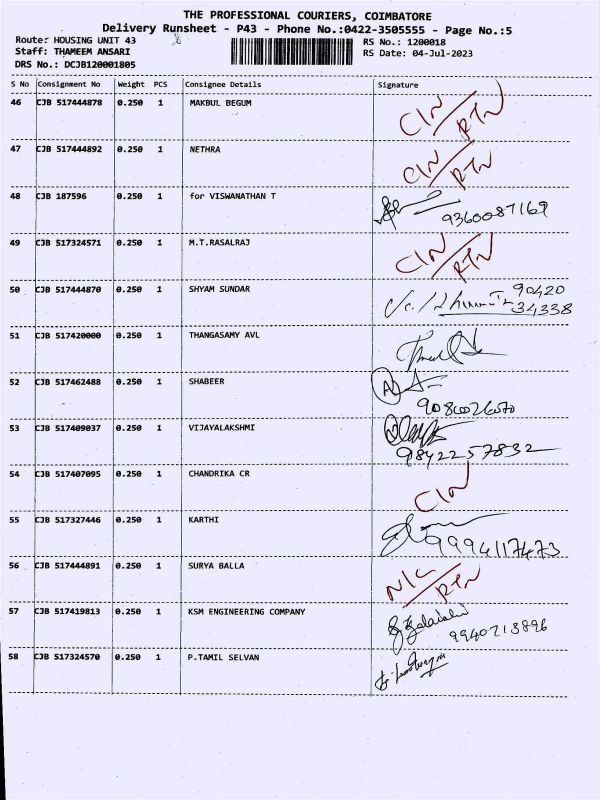 THE PROFESSIONAL COURIERS, COIMBATORE
Delivery Runsheet - P43 - Phone No.:0422-3505555 - Page No.:5
Route: HOUSING UNIT 43
RS No.: 1200018
Staff: THAMEEM ANSARI
RS Date: 04-Jul-2023
DRS No.: DCJB120001805
S No Consignment No Weight PCS Consignee Details Signature
46 CJB 517444878 0.250 1 MAKBUL BEGUM CIN/RTN
47 CJB 517444892 0.250 1 NETHRA CIN/RTN
48 CJB 187596 0.250 1 for VISWANATHAN T 9360087169
49 CJB 517324571 0.250 1 M.T.RASALRAJ CIN/RTN
50 CJB 517444870 0.250 1 SHYAM SUNDAR 90420
34338
51 CJB 517420000 0.250 1 THANGASAMY AVL
52 CJB 517462488 0.250 1 SHABEER
53 CJB 517409037 0.250 1 VIJAYALAKSHMI 9842257832
54 CJB 517407095 0.250 1 CHANDRIKA CR CIN
55 CJB 517327446 0.250 1 KARTHI 9994117473
56 CJB 517444891 0.250 1 SURYA BALLA N/L/RTN
57 CJB 517419813 0.250 1 KSM ENGINEERING COMPANY 9940713896
58 CJB 517324570 0.250 1 P.TAMIL SELVAN